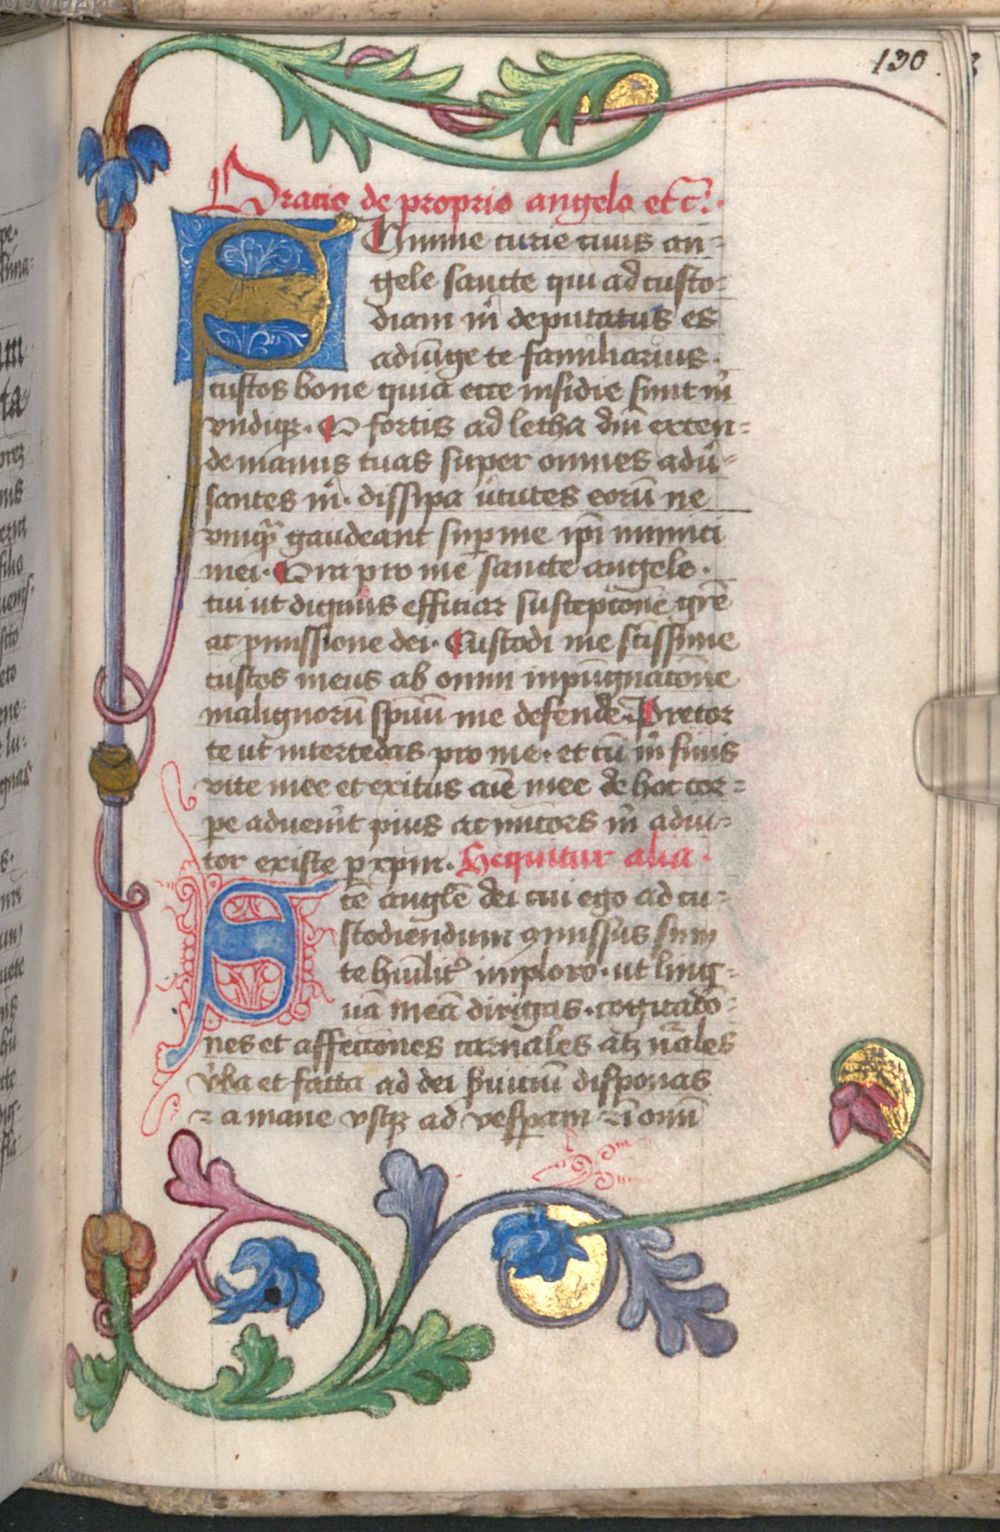 130
Oratio de proprio angelo etc̃.
Summe curie ciuis an=
gele sancte qui ad custo=
diam m̃ deputatus es
adiũge te familiarius.
custos bone quia ecce insidie sunt m̃
vndiqꝫ. O fortis ad letha dñi exten=
de manus tuas super omnes adũ=
santes m̃. dissipa ũtutes eorũ ne
vnqͣ gaudeant suꝑ me ip̃i inimici
mei. Ora pro me sancte angele.
tui ut dignus efficiar susceptõne gr̃e
ac ꝓmissione dei. Custodi me sc̃issime
custos meus ab omni inpũgnatõne
malignorũ spũu me defende. Precor
te ut intercedas pro me. et cũ m̃ finis
vite mee et exitus aĩe mee de hoc cor=
pe aduen̑it pius ac mitors m̃ adiu=
tor existe ꝑ xpm. Sequitur alia.
te anglẽ dei cui ego ad cu=
stodiendum ꝯmissus sum
te hũilitʾ imploro. ut ling=
uã meã dirigas. cogitatõ=
nes et affectõnes carnales atꝫ ñales
v̑ba et facta ad dei s̑uiciũ disponas
⁊ a mane vsqꝫ ad vesꝑam ⁊ ĩ omi